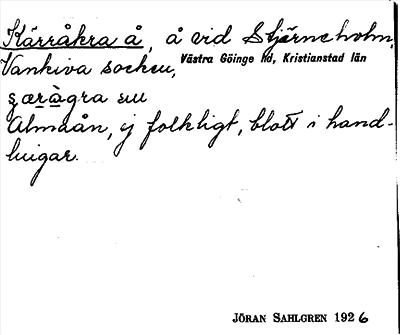 Kärråkra å, å vid Stjärneholm,
Vankiva socken, Västra Göinge hd, Kristianstad län
Almaån, ej folkligt, blott i hand-
lingar.
JÖRAN SAHLGREN 1926